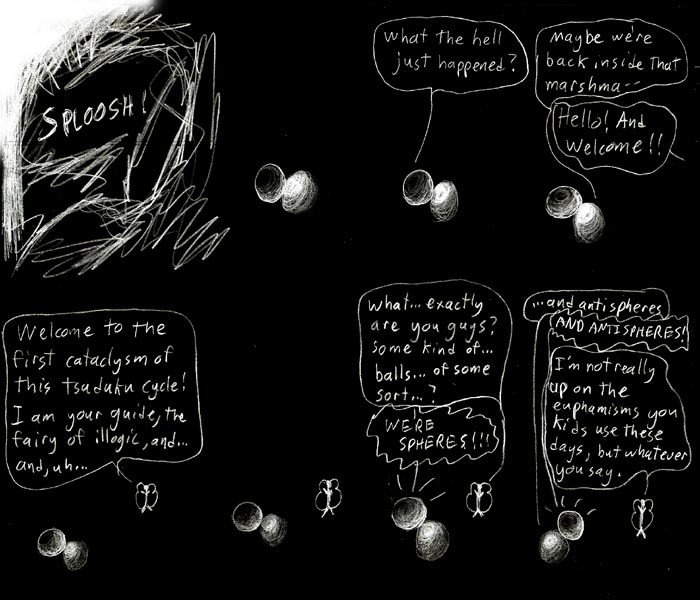 SPLOOSH!
What the hell
just happened?
Maybe we're
back inside that
marshma--
Hello! And
Welcome!!
Welcome to the
first cataclysm of
this tsuduku cycle!
I am your guide, the
fairy of illogic, and...
and, uh...
What... exactly
are you guys?
Some kind of...
balls... of some
sort...?
WE'RE
SPHERES!!!
...and antispheres
AND ANTISPHERES!
I'm not really
up on the
euphamisms you
kids use these
days, but whatever
you say.